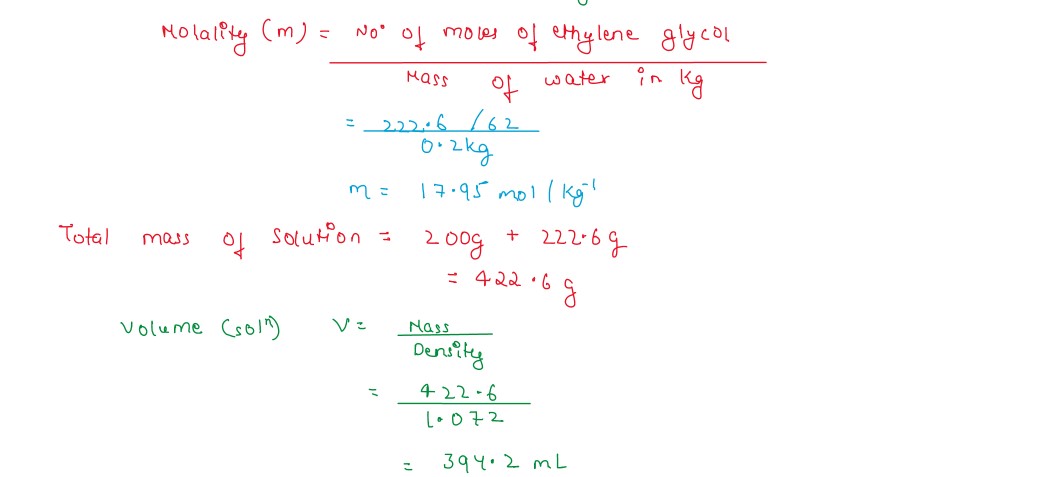 Molality (m) = No. of moles of ethylene glycol
Mass of water in Kg
= 222.6 / 62
0.2kg
m = 17.95 mol / kg⁻¹
Total mass of Solution = 200g + 222.6 g
= 422.6 g
Volume (solⁿ) V = Mass
Density
= 422.6
1.072
= 394.2 mL